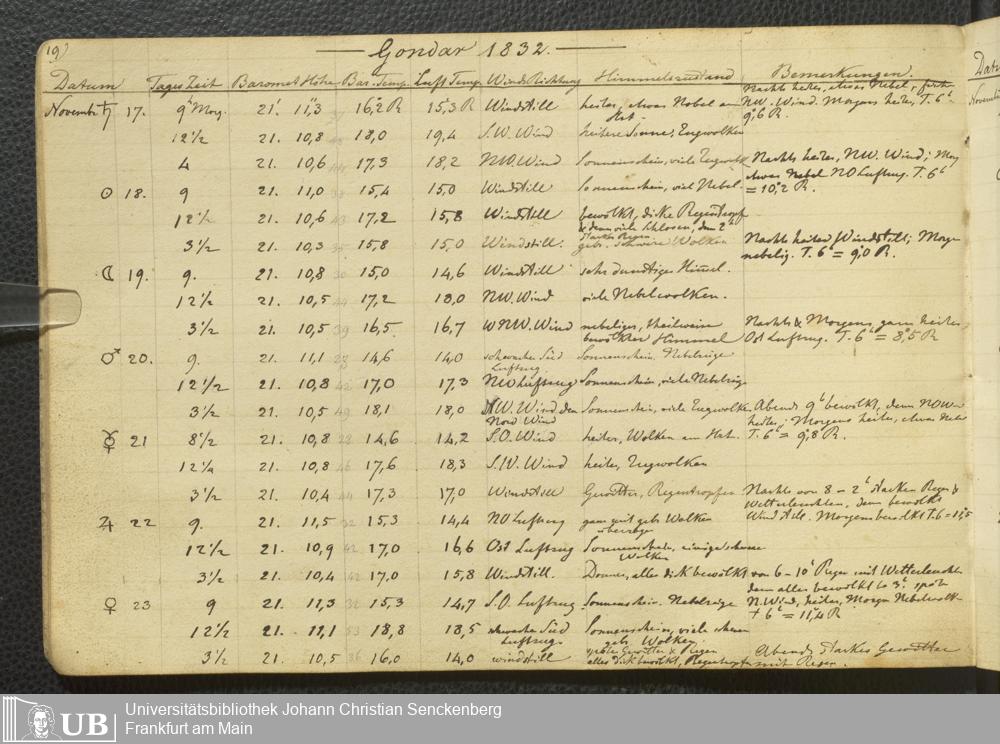 19)
Gondar 1832.
Datum Tages Zeit Baromet Höhe Bar. Temp. Luft Temp. Winds Richtung Himmelszustand Bemerkungen.
Novemb. ♄ 17. 9h Morg. 21' 11,3 16,2 R 15,3 R Windstill heiter, etwas Nebel am Nachts heiter, etwas Nebel,
Hor. NW. Wind. Morgens heiter, T. 6h
9,6 R.
12 1/2 21. 10,8 18,0 19,4 S.W. Wind heitere Sonne, Zugwolken
4 21. 10,6 17,3 18,2 NW. Wind Sonnenschein, viele Zugwolk Nachts heiter, NW. Wind; Morg
etwas Nebel NO Luftzug. T. 6h
☉ 18. 9 21. 11,0 15,4 15,0 Windstill Sonnenschein, viel Nebel. = 10,2 R.
12 1/2 21. 10,6 17,2 15,8 Windstill bewölkt, dicke Regentropf
& dann viele Schlosen, dem 2h
starker Regen
3 1/2 21. 10,3 15,8 15,0 Windstill. geb. schwere Wolken Nachts heiter Windstill; Morgen
nebelig. T. 6h = 9,0 R.
☾ 19. 9. 21. 10,8 30 15,0 14,6 Windstill sehr dunstiger Himel.
12 1/2 21. 10,5 44 17,2 18,0 NW. Wind viele Nebelwolken.
3 1/2 21. 10,5 39 16,5 16,7 WNW. Wind nebeliger, theilweise Nachts & Morgens ganz heiter,
bewölkter Himmel Ost Luftzug. T. 6h = 8,5 R
♂ 20. 9. 21. 11,1 14,6 14,0 schwacher Süd Sonnenschein. Nebelzüge
Luftzug.
12 1/2 21. 10,8 42 17,0 17,3 NW Luftzug Sonnenschein, viele Nebelzüge
3 1/2 21. 10,5 49 18,1 18,0 NW. Wind dann Sonnenschein, viele Zugwolken Abends 9h bewölkt, dann NO Wind
Nord Wind heiter; Morgens heiter, etwas Nebel
☿ 21 8 1/2 21. 10,8 28 14,6 14,2 S.O. Wind heiter, Wolken am Hor. T. 6h = 9,8 R.
12 1/4 21. 10,8 46 17,6 18,3 S.W. Wind heiter, Zugwolken
3 1/2 21. 10,4 44 17,3 17,0 Windstill Gewitter, Regentropfen Nachts von 8 - 2h starken Regen &
Wetterleuchten, dann bewölkt
♃ 22 9. 21. 11,5 32 15,3 14,4 NO Luftzug ganz mit geb. Wolken Windstill. Morgens bewölkt T. 6 = 11,5
überzogen
12 1/2 21. 10,9 42 17,0 16,6 Ost Luftzug Sonnenschein, einige schwere
Wolken
3 1/2 21. 10,4 42 17,0 15,8 Windstill. Donner, alles dick bewölkt von 6 - 10h Regen mit Wetterleuchten
dann alles bewölkt bis 3h spät
♀ 23 9 21. 11,3 32 15,3 14,7 S.O. Luftzug Sonnenschein. Nebelzüge N. Wind, heiter, Morgen Nebelwolk
T 6h = 11,4 R
12 1/2 21. 11,1 53 18,8 18,5 schwacher Süd Sonnenschein, viele schwere
Luftzug. geb. Wolken.
3 1/2 21. 10,5 36 16,0 14,0 windstill Gewitter & Regen Abends starkes Gewitter
alles dick bewölkt, Regentropfen mit Regen.
Datu
Novemb
UB Universitätsbibliothek Johann Christian Senckenberg
Frankfurt am Main